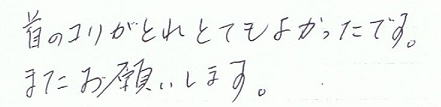 首のコリがとれとてもよかったです。
またお願いします。